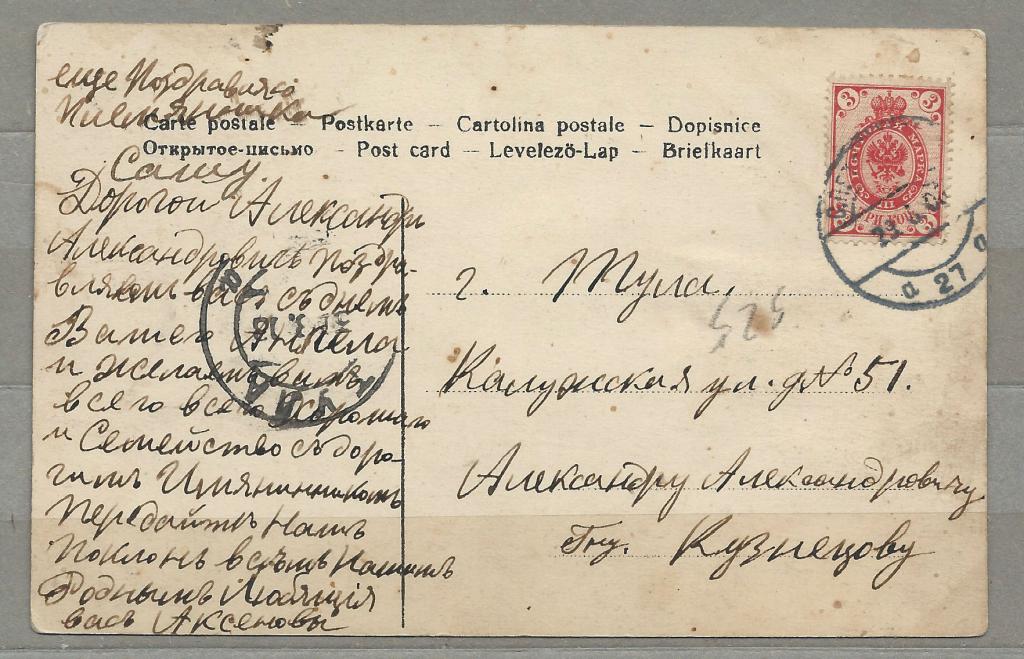 еще Поздравляю
Племяника
Carte postale – Postkarte – Cartolina postale – Dopisnice
Открытое-письмо – Post card – Levelező-Lap – Briefkaart
Сашу.
Дорогой Александр
Александровичъ поздра-
вляемъ васъ съ днемъ
Вашего Ангела
и желаемъ вамъ
всего всего хорошаго
и Семейство съ доро-
гимъ Имянинникомъ
Передайтъ Нашъ
Поклонъ всѣмъ Нашимъ
Роднымъ Любящія
васъ Аксеновы
3 3
ПОЧТОВАЯ МАРКА
ТРИ КОП.
27
г. Тула,
525
Калужская ул. д № 51.
Александру Александровичу
Гну. Кузнецову
ТУЛА